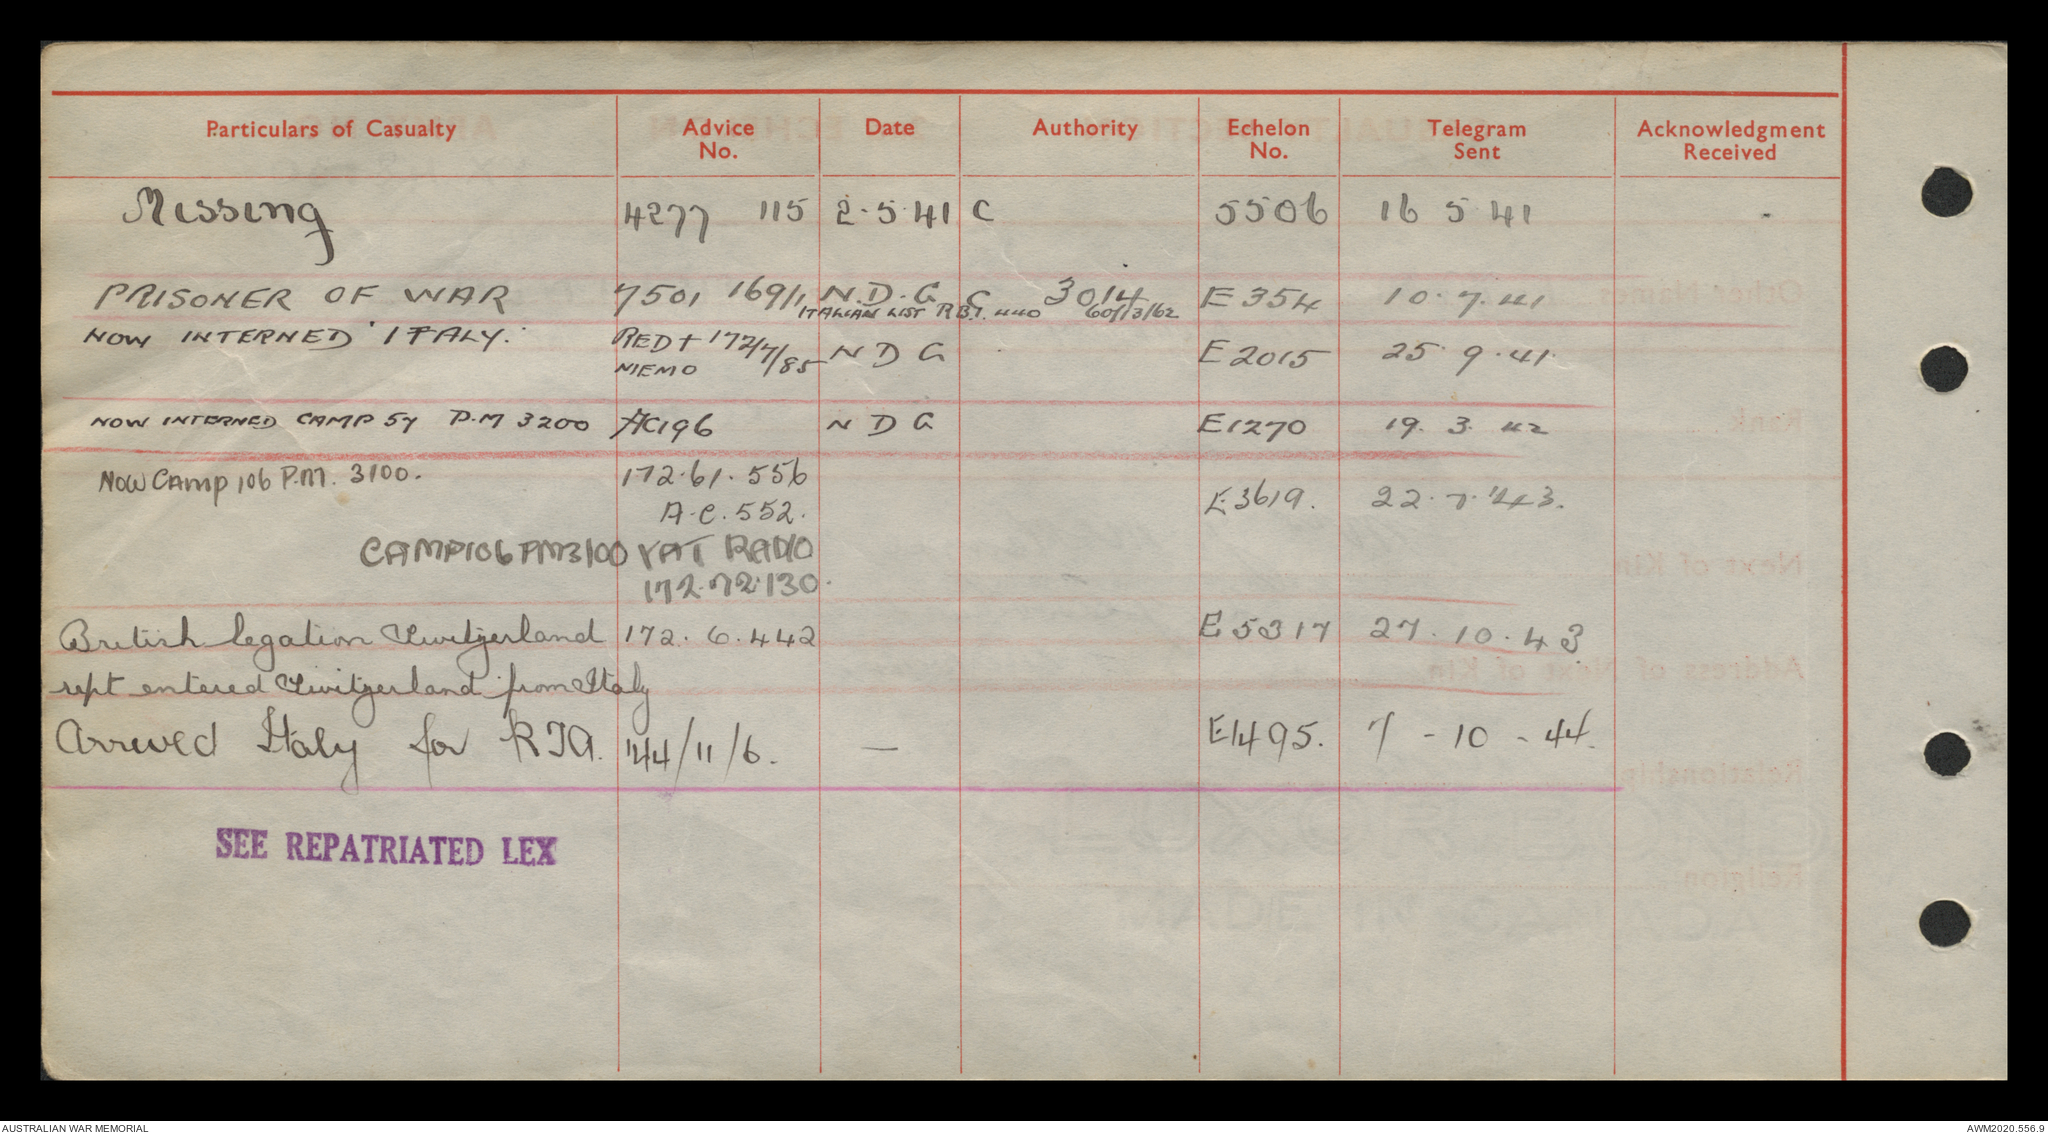 Particulars of Casualty Advice No. Date Authority Echelon No. Telegram Sent Acknowledgment Received
Missing 4277 115 2·5·41 C 5506 16 5 41 -
PRISONER OF WAR 7501 169/1 N.D.G C 3014 E354 10·7·41
ITALIAN LIST R.B.T. 440 60/13/62
NOW INTERNED ITALY. RED + 172/7/85 NDG E2015 25·9·41
MEMO
NOW INTERNED CAMP 57 P.M 3200 AC196 NDG E1270 19. 3. 42
NOW CAMP 106 P.M. 3100. 172.61.556 E3619. 22·7·43.
A.C. 552.
CAMP 106 PM3100 VAT RADIO
172.72.130.
British legation Switzerland 172. 6.442 E5317 27·10·43
rept entered Switzerland from Italy
Arrived Italy for RTA. 44/11/6. — E1495. 7 - 10 - 44.
SEE REPATRIATED LEX
Other Names
Rank
Next of Kin
Address of Next of Kin
Relationship
Religion
AUSTRALIAN WAR MEMORIAL AWM2020.556.9